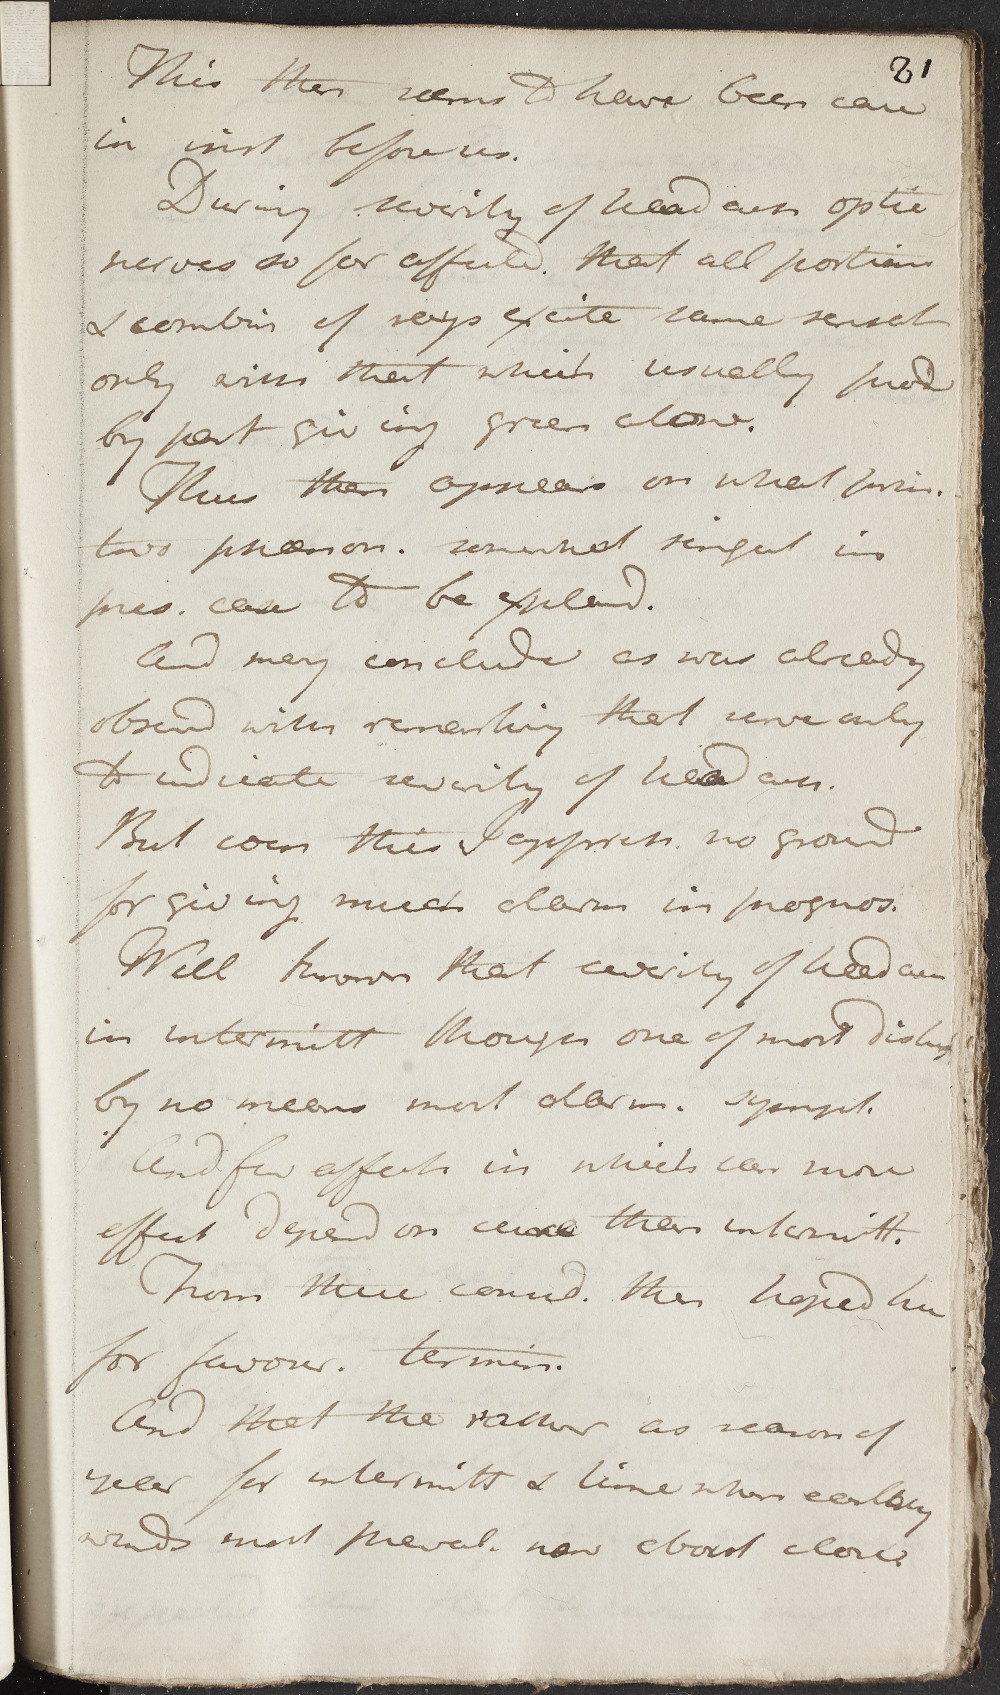 81
This then seems to have been case
in inst before us.
During severity of headach optic
nerves so far affected. that all portions
& combin of rays excite same sensat
only with that which usually prod
by part giving green alone.
Thus then appears on what prin.
two phænon. somewhat singul in
pres. case to be explaind.
And may conclude as was already
observd with remarking that serve only
to indicate severity of headach.
But even this I appreh. no ground
for giving much alarm in prognos.
Well known that severity of headach
in intermitt though one of most distress
by no means most alarm. sympt.
And few affects in which can more
effect depend on cause then intermitt.
From these consid. then hoped here
for favour. termin.
And that the rather as season of
year for intermitt & time when easterly
winds most preval. now about close.